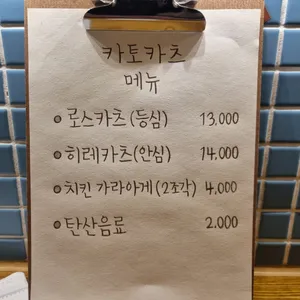 카토카츠
메뉴
로스카츠(등심) 13,000
히레카츠(안심) 14,000
치킨 가라아게(2조각) 4,000
탄산음료 2.000